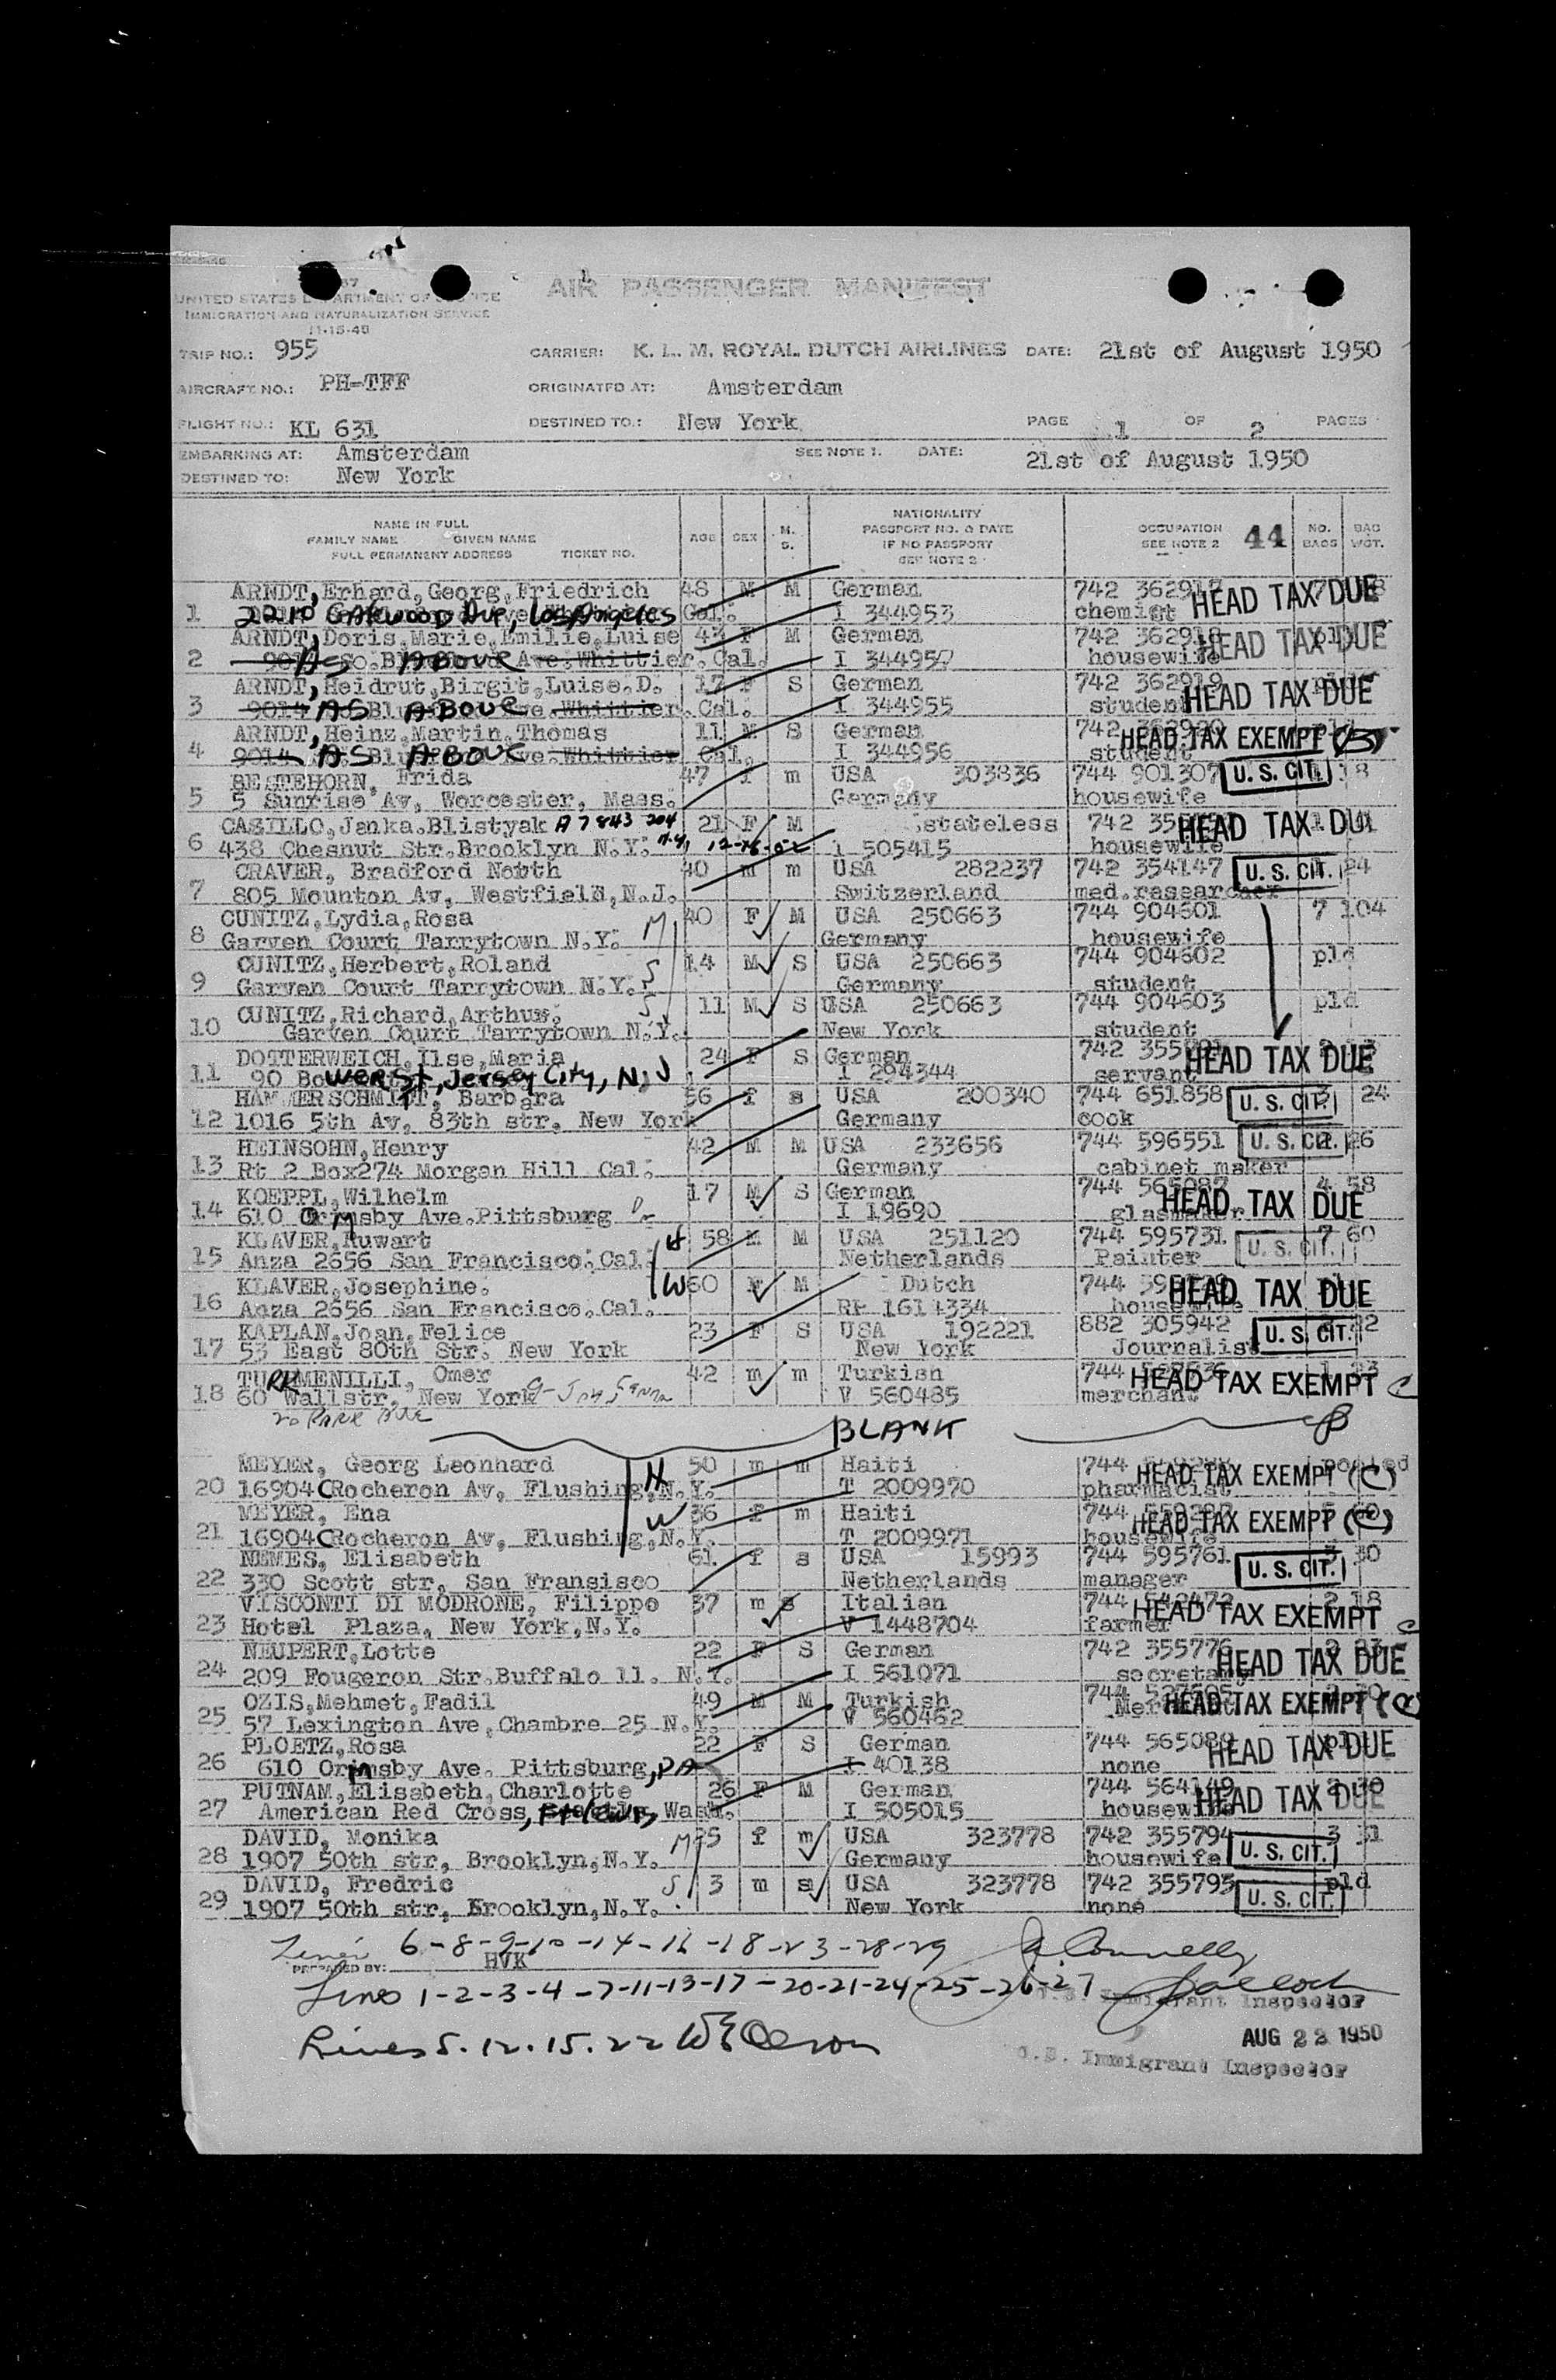 UNITED STATES DEPARTMENT OF JUSTICE
IMMIGRATION AND NATURALIZATION SERVICE
11-15-48
AIR PASSENGER MANIFEST
TRIP NO.: 955 CARRIER: K. L. M. ROYAL DUTCH AIRLINES DATE: 21st of August 1950
AIRCRAFT NO.: PH-TFF ORIGINATED AT: Amsterdam
FLIGHT NO.: KL 631 DESTINED TO.: New York PAGE 1 OF 2 PAGES
EMBARKING AT: Amsterdam SEE NOTE 1. DATE: 21st of August 1950
DESTINED TO: New York
NAME IN FULL
FAMILY NAME GIVEN NAME
FULL PERMANENT ADDRESS TICKET NO.
AGE SEX M. S.
NATIONALITY
PASSPORT NO. & DATE
IF NO PASSPORT
SEE NOTE 2
OCCUPATION
SEE NOTE 2
44 NO. BAGS BAG WGT.
ARNDT, Erhard, Georg, Friedrich 48 M M German 742 362917 HEAD TAX DUE
1 2210 OAKWOOD Ave, Los Angeles Cal. I 344953 chemist
ARNDT, Doris, Marie, Emilie, Luise 43 F M German 742 362918 HEAD TAX DUE
2 AS ABOVE Ave. Whittier. Cal. I 344957 housewife
ARNDT, Heidrut, Birgit, Luise. D. 17 F S German 742 362919 HEAD TAX DUE
3 9014 AS ABOVE Whittier. Cal. I 344955 student
ARNDT, Heinz, Martin, Thomas 11 M S German 742 362920 HEAD TAX EXEMPT
4 9014 AS ABOVE Ave. Whittier Cal. I 344956 student
BESTEHORN, Frida 47 f m USA 303836 744 901307 U. S. CIT. 18
5 5 Sunrise Av, Worcester, Mass. Germany housewife
CASILLO, Janka. Blistyak A 7 843 204 21 F M stateless 742 HEAD TAX DUE
6 438 Chesnut Str. Brooklyn N.Y. I 505415 housewife
CRAVER, Bradford North 40 m m USA 282237 742 354147 U. S. CIT. 24
7 805 Mounton Av, Westfield, N.J. Switzerland med. researcher
CUNITZ, Lydia, Rosa M 40 F M USA 250663 744 904601 7 104
8 Garven Court Tarrytown N.Y. Germany housewife
CUNITZ, Herbert, Roland S 14 M S USA 250663 744 904602 pld
9 Garven Court Tarrytown N.Y. Germany student
CUNITZ, Richard, Arthur. S 11 M S USA 250663 744 904603 pld
10 Garven Court Tarrytown N.Y. New York student
DOTTERWEICH, Ilse, Maria 24 F S German 742 HEAD TAX DUE
11 90 Bowers St, Jersey City, N.J I 294344 servant
HAMMERSCHMIDT, Barbara 56 f s USA 200340 744 651858 U. S. CIT. 24
12 1016 5th Av, 83th str, New York Germany cook
HEINSOHN, Henry 42 M M USA 233656 744 596551 U. S. CIT. 26
13 Rt 2 Box274 Morgan Hill Cal. Germany cabinet maker
KOEPPL, Wilhelm 17 M S German 744 565087 4 58 HEAD TAX DUE
14 610 Ormsby Ave. Pittsburg I 19690 glasmaker
KLAVER, Ruwart H 58 M M USA 251120 744 595731 7 60 U. S. CIT.
15 Anza 2656 San Francisco. Cal. Netherlands Painter
KLAVER, Josephine. W 60 M Dutch 744 HEAD TAX DUE
16 Anza 2656 San Francisco. Cal. housewife
KAPLAN, Joan, Felice 23 F S USA 192221 882 305942 U. S. CIT. 22
17 53 East 80th Str. New York New York Journalist
TURRMENILLI, Omer 42 m m Turkish 744 HEAD TAX EXEMPT C
18 60 Wallstr, New York V 560485 merchant
20 PARK AVE
BLANK
MEYER, Georg Leonhard H 50 m m Haiti 744 HEAD TAX EXEMPT (C)
20 16904 CRocheron Av, Flushing, N.Y. T 2009970 pharmacist
MEYER, Ena W 36 f m Haiti 744 HEAD TAX EXEMPT (C)
21 16904 CRocheron Av, Flushing, N.Y. T 2009971 housewife
NEMES, Elisabeth 61 f s USA 15993 744 595761 3 30 U. S. CIT.
22 330 Scott str, San Fransisco Netherlands manager
VISCONTI DI MODRONE, Filippo 37 m s Italian 744 542472 2 18 HEAD TAX EXEMPT C
23 Hotel Plaza, New York, N.Y. V 1448704 farmer
NEUPERT, Lotte 22 F S German 742 355776 HEAD TAX DUE
24 209 Fougeron Str. Buffalo 11. N.Y. I 561071 secretary
OZIS, Mehmet, Fadil 49 M M Turkish 744 HEAD TAX EXEMPT (C)
25 57 Lexington Ave, Chambre 25 N.Y. V 560462 Merchant
PLOETZ, Rosa 22 F S German 744 565089 HEAD TAX DUE
26 610 Ormsby Ave. Pittsburg, PA I 40138 none
PUTNAM, Elisabeth, Charlotte 26 F M German 744 564149 HEAD TAX DUE
27 American Red Cross, Ft Lewis, Wash. I 505015 housewife
DAVID, Monika M 25 f m USA 323778 742 355794 3 31
28 1907 50th str, Brooklyn, N.Y. Germany housewife U. S. CIT.
DAVID, Fredric S 3 m s USA 323778 742 355795 pld
29 1907 50th str, Brooklyn, N.Y. New York none U. S. CIT.
Lines 6-8-9-10-14-16-18-23-28-29 J Connelly
PREPARED BY: HVK
Lines 1-2-3-4-7-11-13-17-20-21-24-25-26-27
U.S. Immigrant Inspector
Lines 5.12.15.22
AUG 22 1950
U.S. Immigrant Inspector